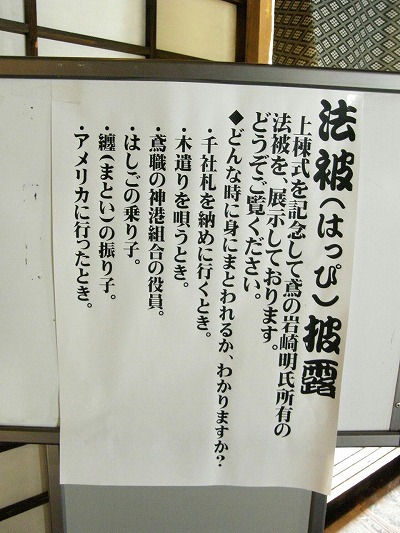 法被(はっぴ)披露
上棟式を記念して鳶の岩崎明氏所有の
法被を、展示しております。
どうぞご覧ください。
◆どんな時に身にまとわれるか、わかりますか?
・千社札を納めに行くとき。
・木遣りを唄うとき。
・鳶職の神港組合の役員。
・はしごの乗り子。
・纏(まとい)の振り子。
・アメリカに行ったとき。